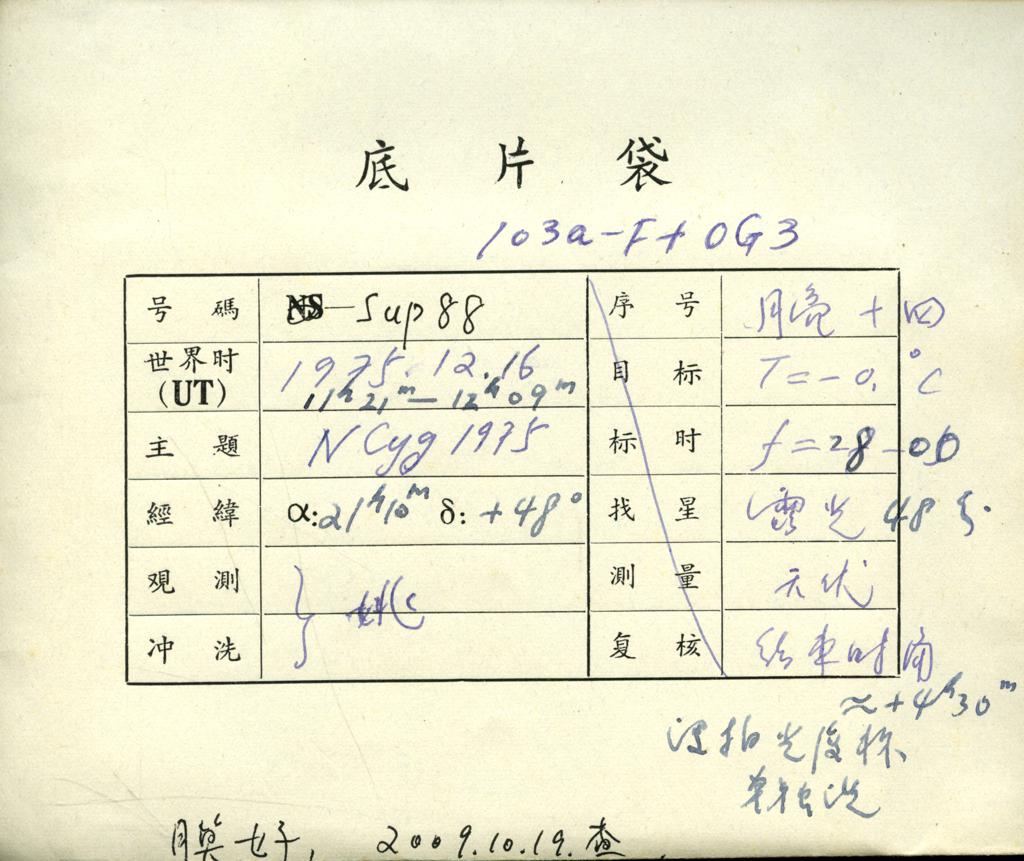 底片袋
103a-F+OG3
号碼 NS-Sup88 序号 月亮十四
世界时 1975.12.16 目标 T=-0.°C
(UT) 11h21m—12h09m
主題 N Cyg 1975 标时 f=28-00
經緯 α:21h10m δ:+48° 找星 露光48分
观測 姚 測量 天优
冲洗 复核 结束时角
≈+4h30m
没拍光度标
单独洗
膜好, 2009.10.19.查.